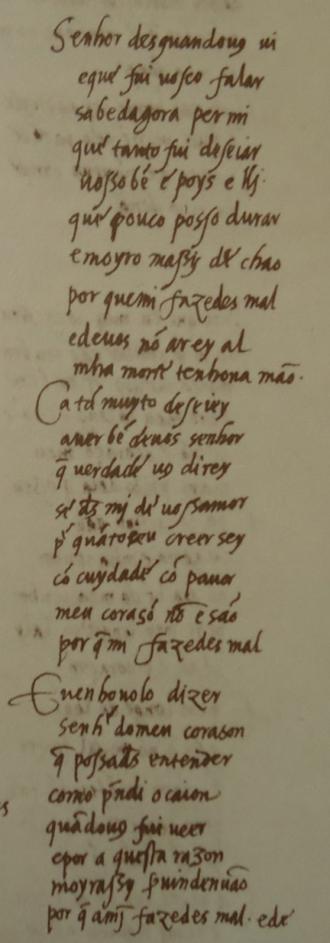 Senhor desquandouꝯ ui
equé fui uosco falar
sabedagora per mi
qué tanto fui deseiar
uossobé e poys e
qué pouco posso durar
e moyro massy de chao
por quemi fazedes mal
edeuos nó ar ey al
mha morte tenhona mão.
Ca tá muyto deseiey
auer bé deuos senhor
q̃ uerdadé uꝯ direy
sé ds mj dé uossamor
p̃ quãto eu creer sey
có cuydadé có pauor
meu corasó nõ e são
por q̃ mi fazedes mal
Euenhouolo dizer
senhʳ domeu corason
q̃ possads entender
como p̃ndi ocaion
quãdouꝯ fui ueer
epor a questa razon
moyrassy seruindenuão
por q̃ amj fazedes mal. ede